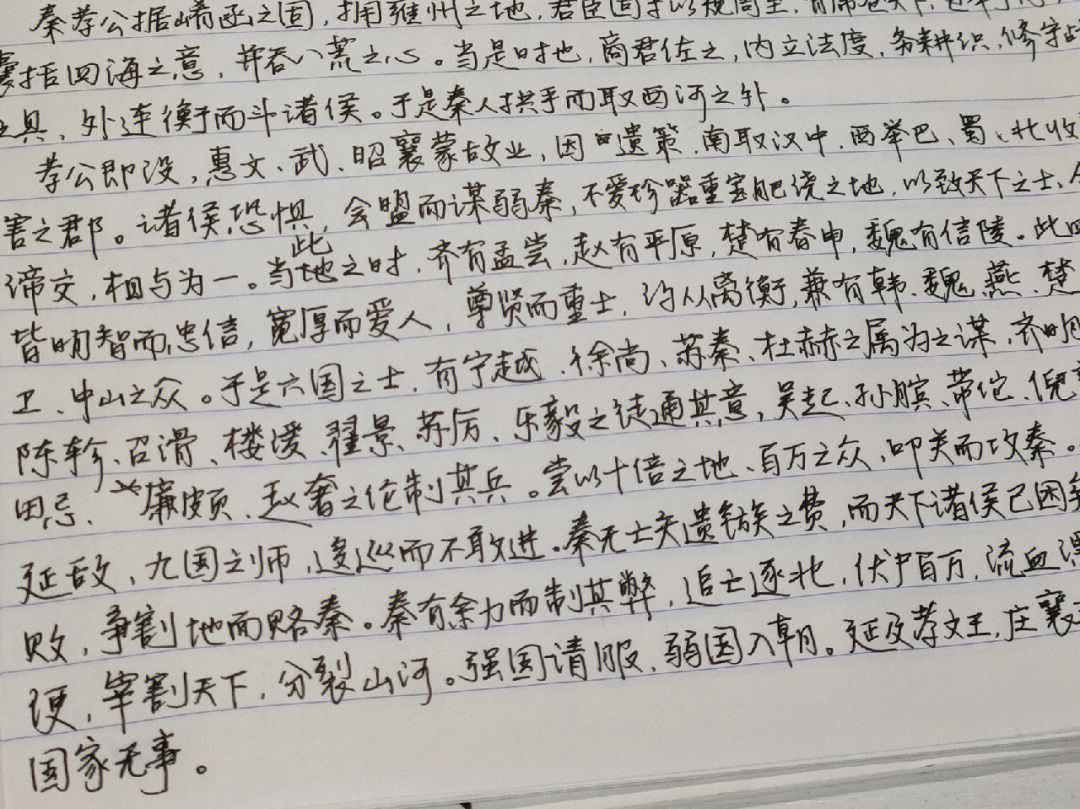 秦孝公据崤函之固，拥雍州之地，君臣固守以窥周室，有席卷天下，
囊括四海之意，并吞八荒之心。当是时也，商君佐之，内立法度，务耕织，修守战
之具，外连衡而斗诸侯。于是秦人拱手而取西河之外。
孝公即没，惠文、武、昭襄蒙故业，因遗策，南取汉中，西举巴、蜀、北收
害之郡。诸侯恐惧，会盟而谋弱秦，不爱珍器重宝肥饶之地，以致天下之士、
缔交，相与为一。当此之时，齐有孟尝，赵有平原，楚有春申，魏有信陵。此四
皆明智而忠信，宽厚而爱人，尊贤而重士，约从离衡，兼有韩、魏、燕、楚
卫、中山之众。于是六国之士，有宁越、徐尚、苏秦、杜赫之属为之谋，齐明
陈轸、召滑、楼缓、翟景、苏厉、乐毅之徒通其意，吴起、孙膑、带佗、倪
田忌、廉颇、赵奢之伦制其兵。尝以十倍之地、百万之众，叩关而攻秦。
延敌，九国之师，逡巡而不敢进。秦无亡矢遗镞之费，而天下诸侯已困矣
败，争割地而赂秦。秦有余力而制其弊，追亡逐北，伏尸百万，流血漂
便，宰割天下，分裂山河。强国请服，弱国入朝。延及孝文王，庄襄王
国家无事。